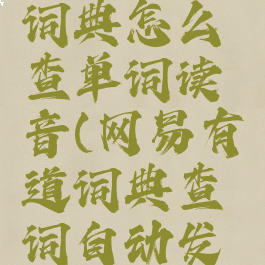 词典怎么
查单词读
音(网易有
道词典查
词自动发